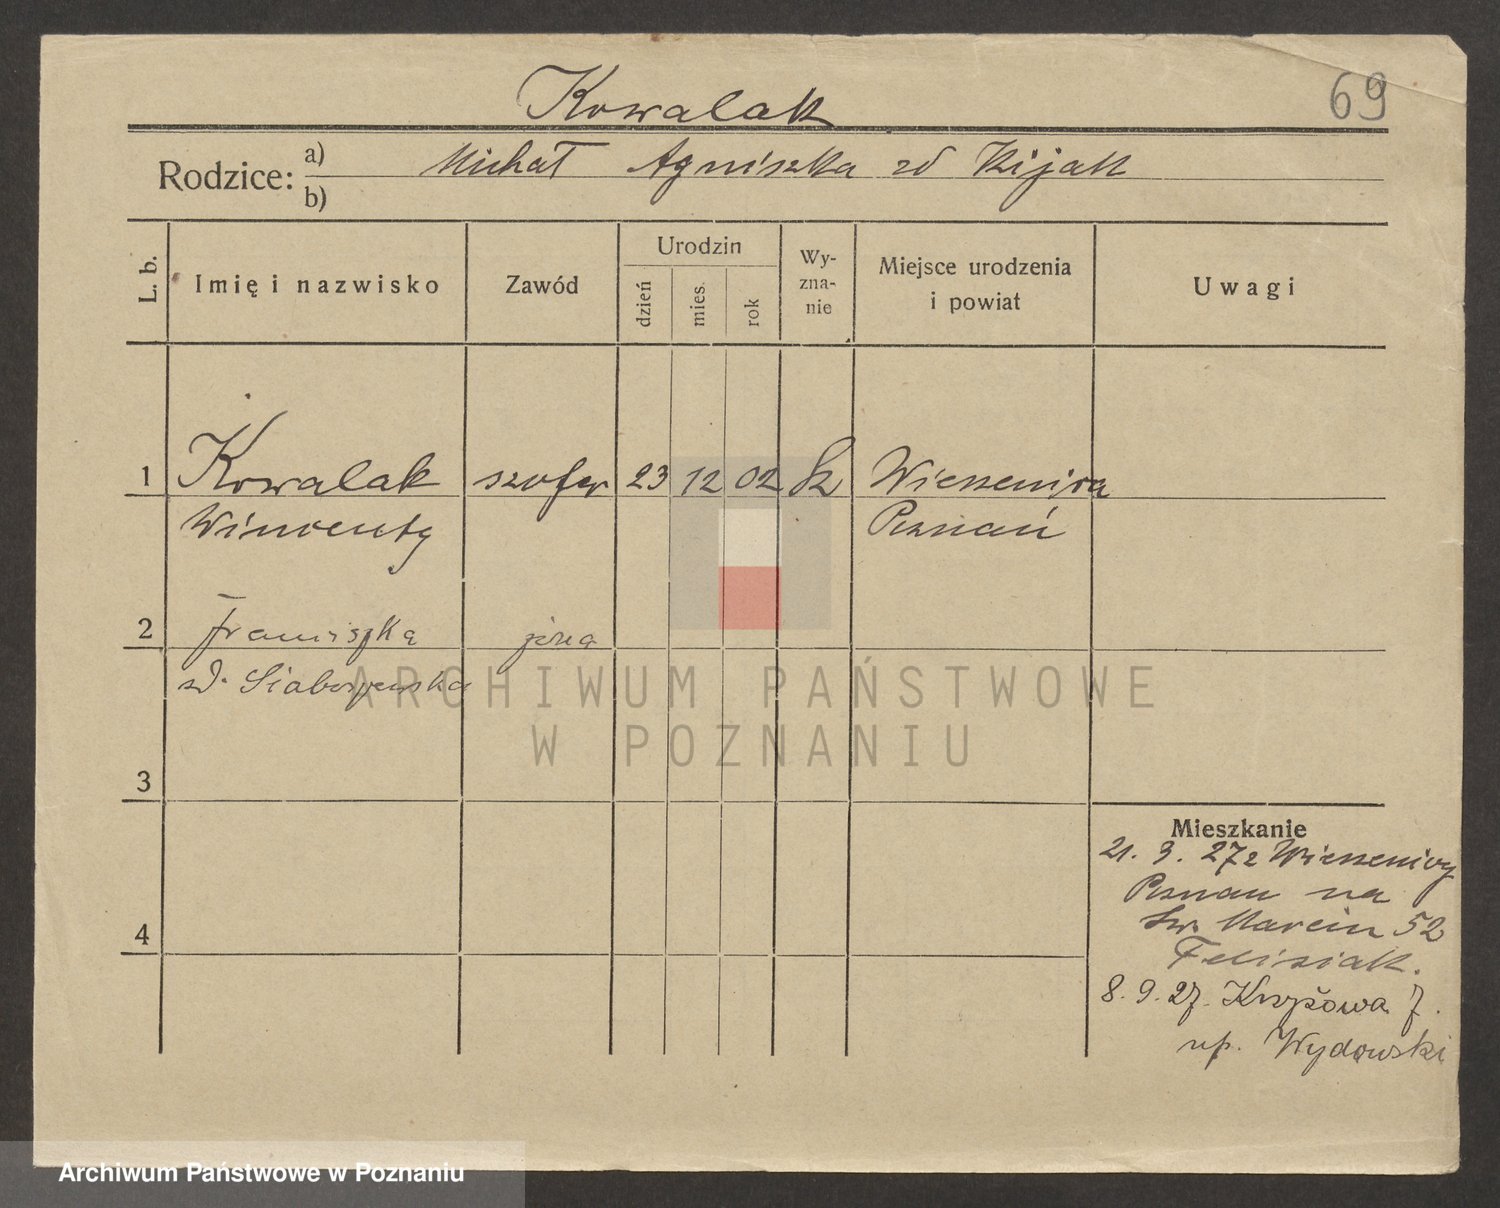 Kowalak
69
Rodzice: a) Michał Agniszka zd Kijak
b)
L. b.
Imię i nazwisko
Zawód
Urodzin
dzień
mies.
rok
Wy-
zna-
nie
Miejsce urodzenia
i powiat
Uwagi
1 Kowalak szofer 23 12 02 Wierzenica
Wincenty Poznań
2 Franciszka żona
zd.
3
4
Mieszkanie
21. 3. 27 z Wierzenicy
Poznań na
Św. Marcin 52
Felisiak.
8. 9. 27. Krzyżowa 7.
up. Wydowski
ARCHIWUM PAŃSTWOWE
W POZNANIU
Archiwum Państwowe w Poznaniu